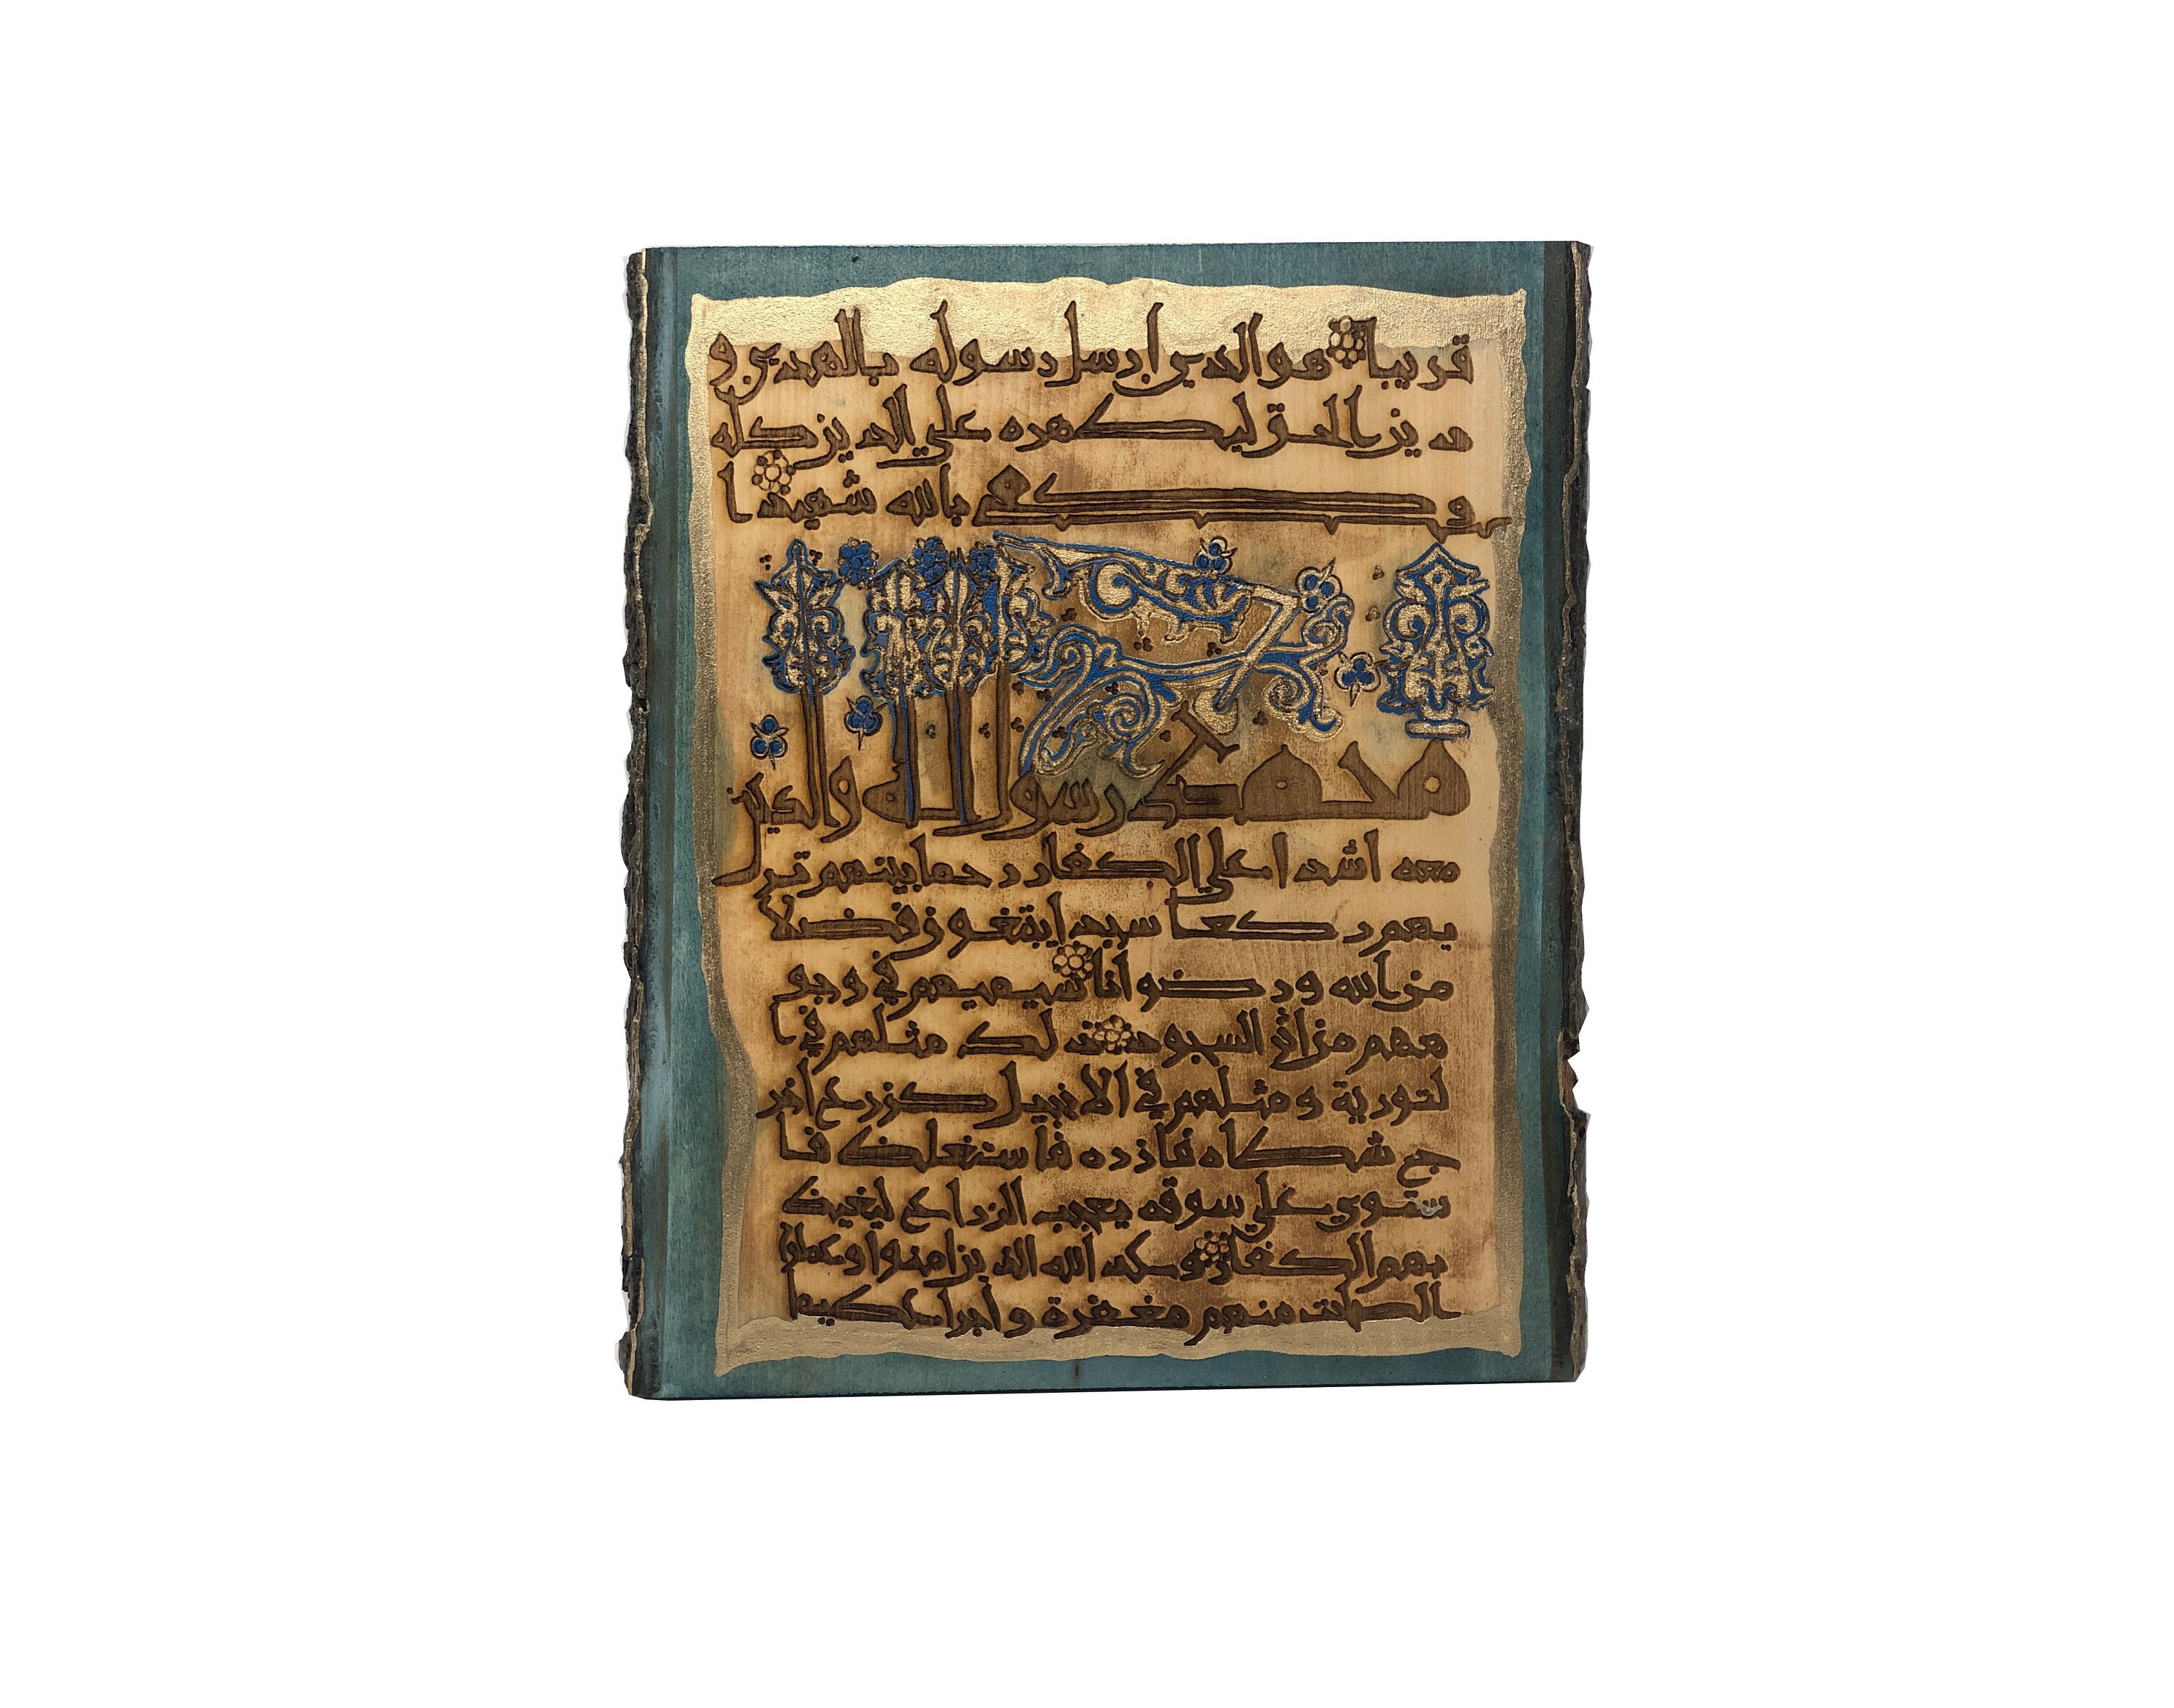 قريبا هو الذي ارسل رسوله بالهدي و
دين الحق ليظهره علي الدين كله
وكفي بالله شهيدا
محمد رسول الله والذين
معه اشدا علي الكفار رحما بينهم تر
يهم ركعا سجدا يبتغون فضلا
من الله ورضوانا سيميهم في وجو
ههم من اثر السجود ذلك مثلهم في ا
لتورية ومثلهم في الانجيل كزرع اخر
ج شطاه فازره فاستغلظ فا
ستوي علي سوقه يعجب الزراع ليغيظ
بهم الكفار وعد الله الذين امنوا وعملوا
الصلحت منهم مغفرة وأجرا عظيما